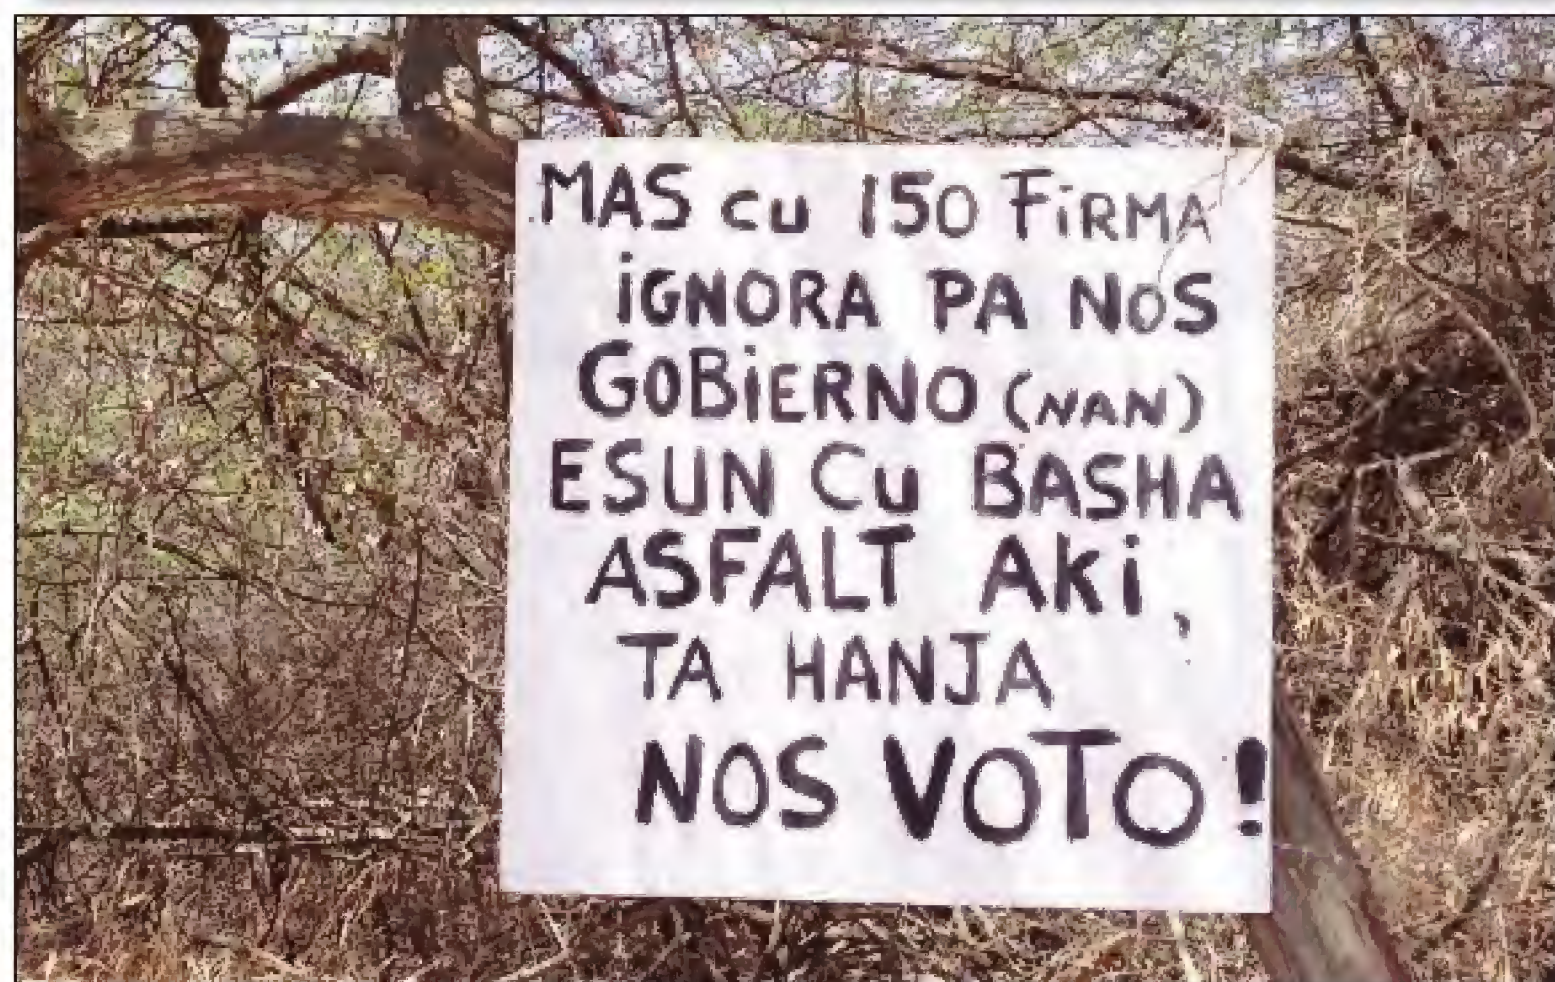 MAS cu 150 FiRMA
iGNORA PA NOS
GOBiERNO (NAN)
ESUN Cu BASHA
ASFALT AKi,
TA HANJA
NOS VOTO!